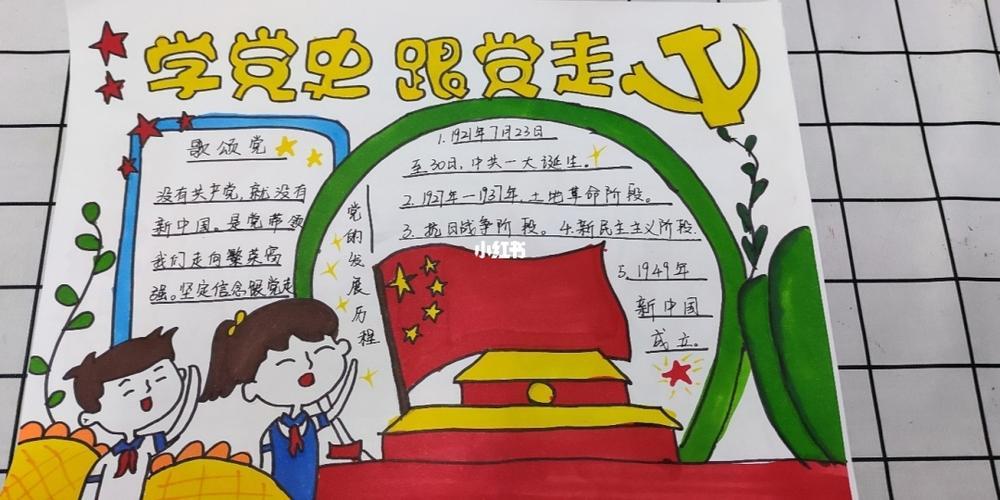 学党史 跟党走
歌颂党
没有共产党，就没有
新中国。是党带领
我们走向繁荣富
强。坚定信念跟党走
党的发展历程
1.1921年7月23日
至30日，中共一大诞生。
2.1927年—1937年，土地革命阶段。
3.抗日战争阶段。4.新民主主义阶段.
5.1949年
新中国
成立。
小红书